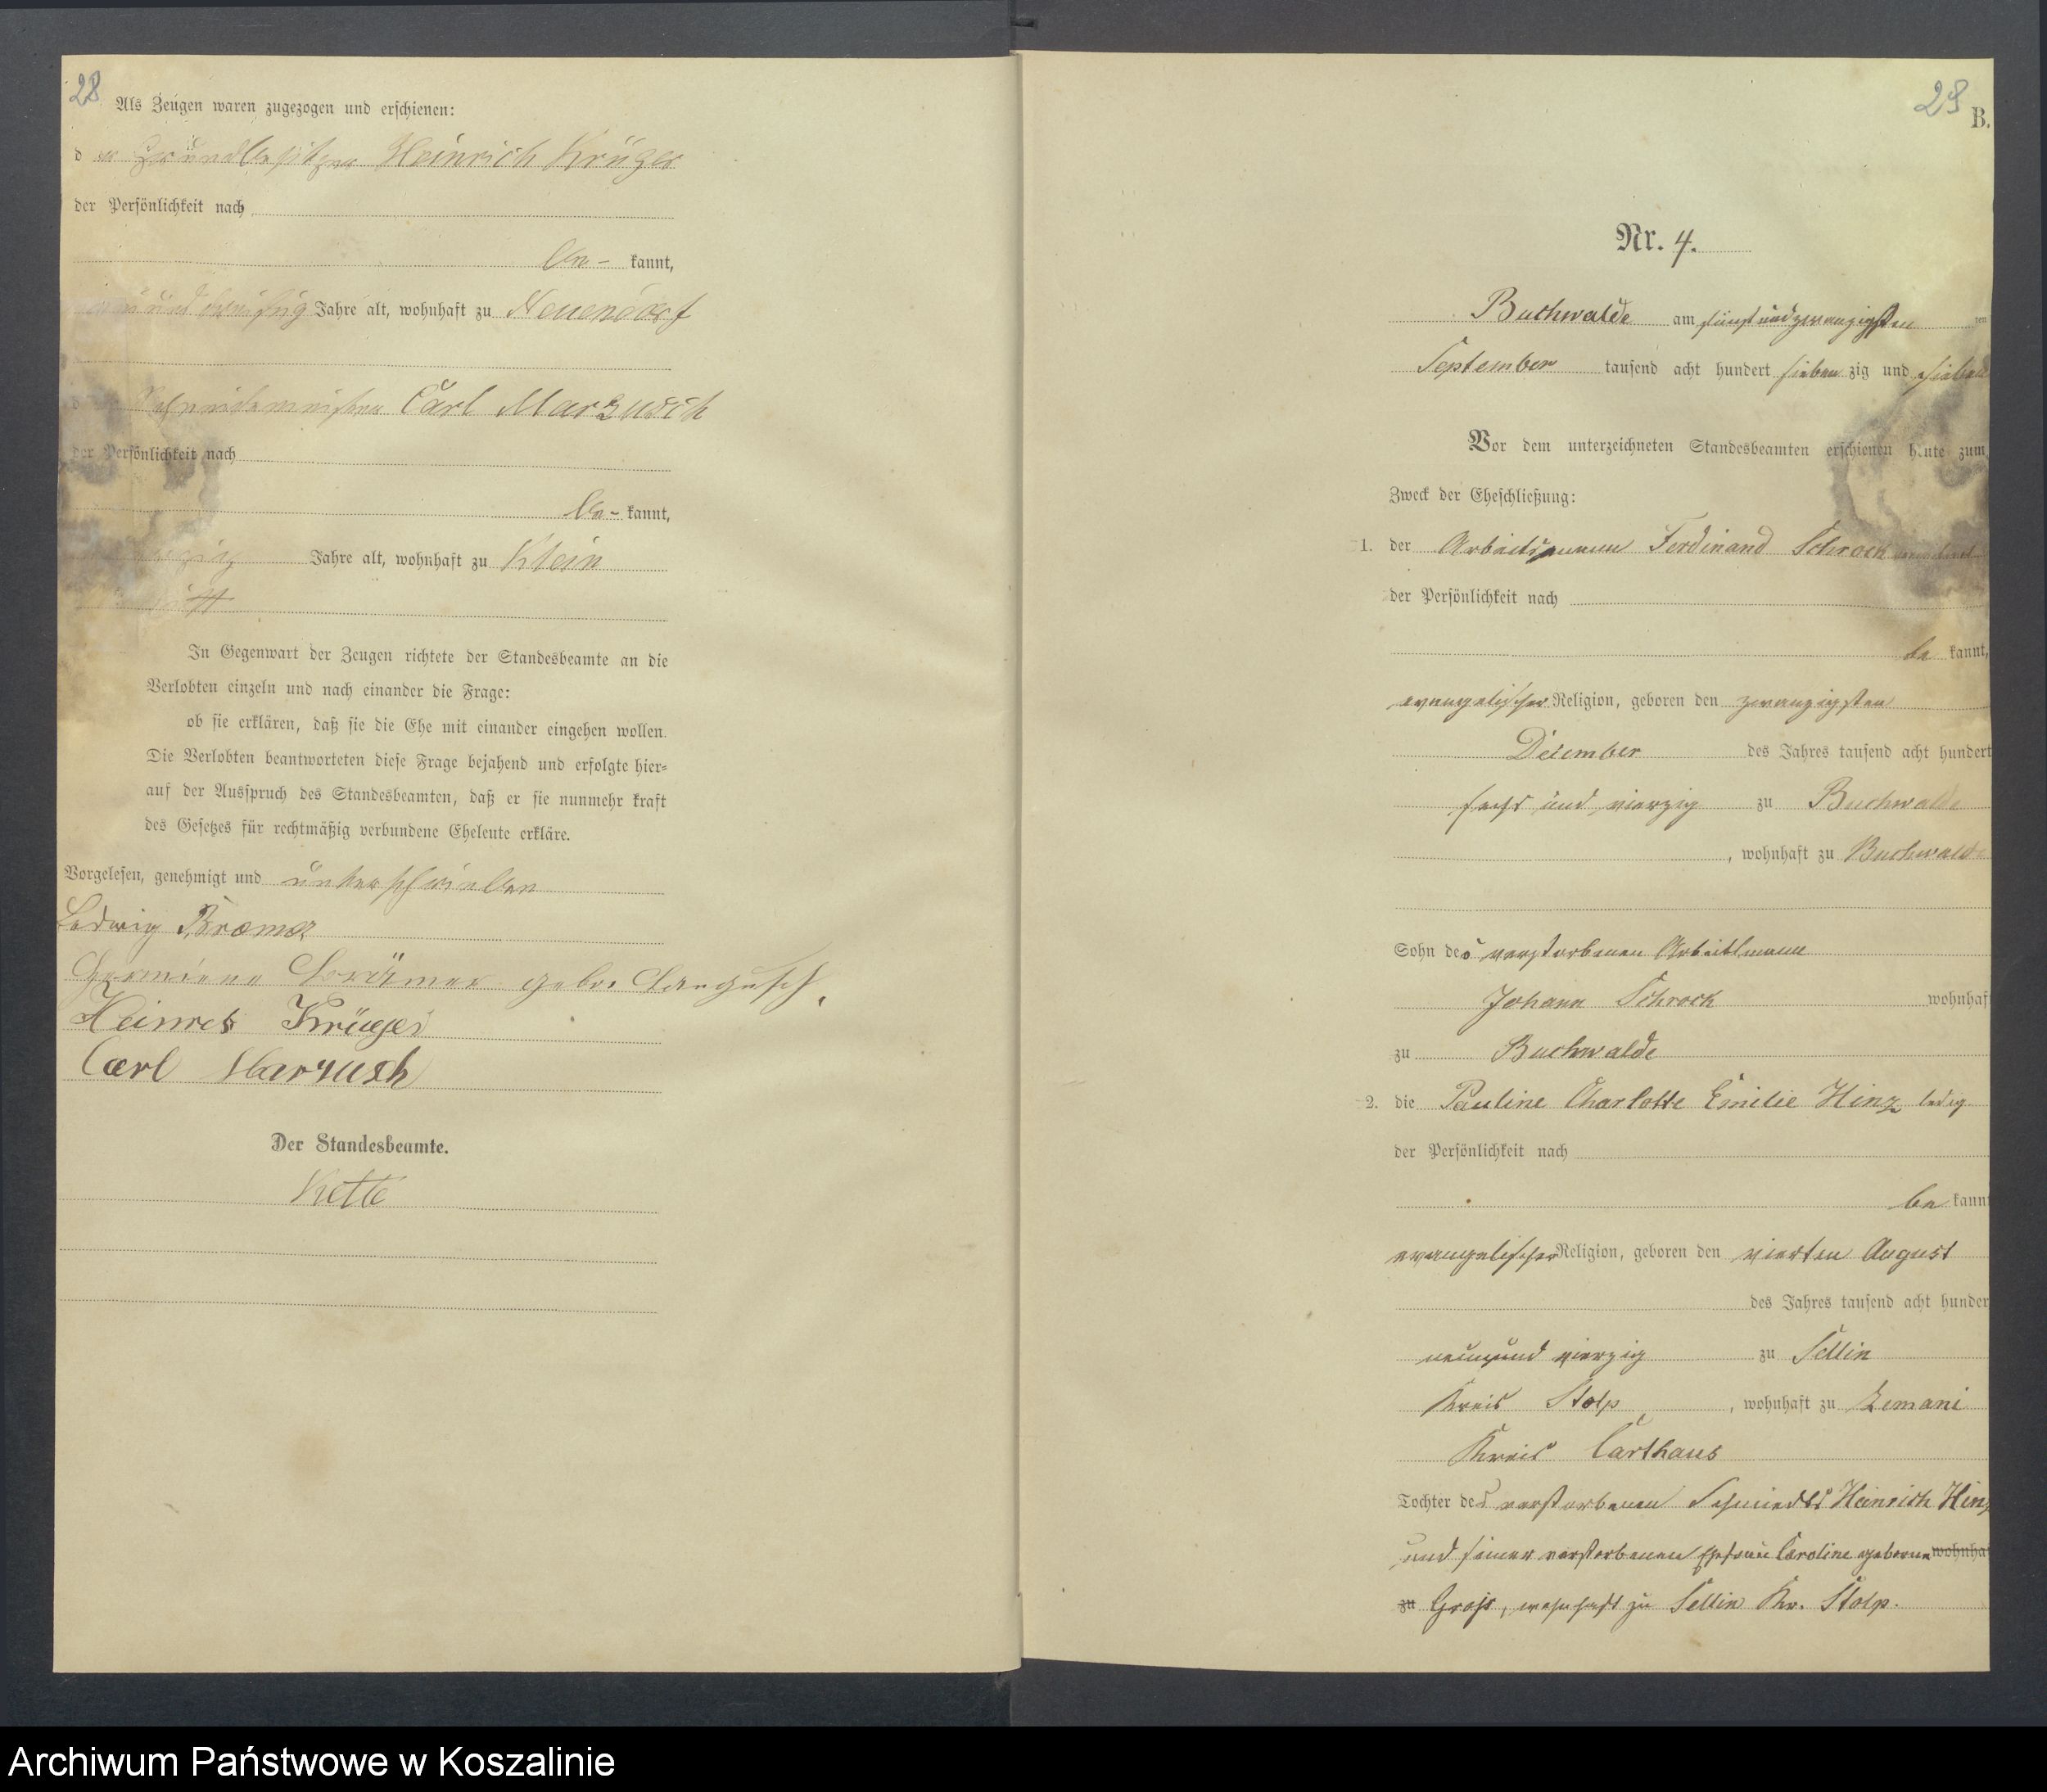 28
Als Zeugen waren zugezogen und erschienen:
d er Grundbesitzer Heinrich Krüger
der Persönlichkeit nach
be- kannt,
und dreißig Jahre alt, wohnhaft zu Neuendorf
Schneidemeister Carl Marzusch
der Persönlichkeit nach
be- kannt,
Jahre alt, wohnhaft zu Klein
In Gegenwart der Zeugen richtete der Standesbeamte an die
Verlobten einzeln und nach einander die Frage:
ob sie erklären, daß sie die Ehe mit einander eingehen wollen.
Die Verlobten beantworteten diese Frage bejahend und erfolgte hier-
auf der Ausspruch des Standesbeamten, daß er sie nunmehr kraft
des Gesetzes für rechtmäßig verbundene Eheleute erkläre.
Vorgelesen, genehmigt und unterschrieben
Ludwig
gebr.
Krüger
Carl Marzusch
Der Standesbeamte.
Kette
29
B.
Nr. 4.
Buchwalde am fünfundzwanzigsten ten
September tausend acht hundert sieben zig und sieben
Vor dem unterzeichneten Standesbeamten erschienen heute zum
Zweck der Eheschließung:
1. der Arbeitsmann Ferdinand Schrock
der Persönlichkeit nach
be kannt,
evangelischer Religion, geboren den zwanzigsten
Dezember des Jahres tausend acht hundert
sechs und vierzig zu Buchwalde
, wohnhaft zu Buchwalde
Sohn des verstorbenen Arbeitsmann
Johann Schrock wohnhaf
zu Buchwalde
2. die Pauline Charlotte Emilie Hinz ledig
der Persönlichkeit nach
be kannt
evangelischer Religion, geboren den vierten August
des Jahres tausend acht hunder
neunund vierzig zu Sellin
Kreis Stolp , wohnhaft zu Zemani
Kreis Carthaus
Tochter des verstorbenen Schmiedes Heinrich Hinz
und seiner verstorbenen Ehefrau Caroline geborne wohnhaf
zu Groß, wohnhaft zu Sellin Kr. Stolp.
Archiwum Państwowe w Koszalinie